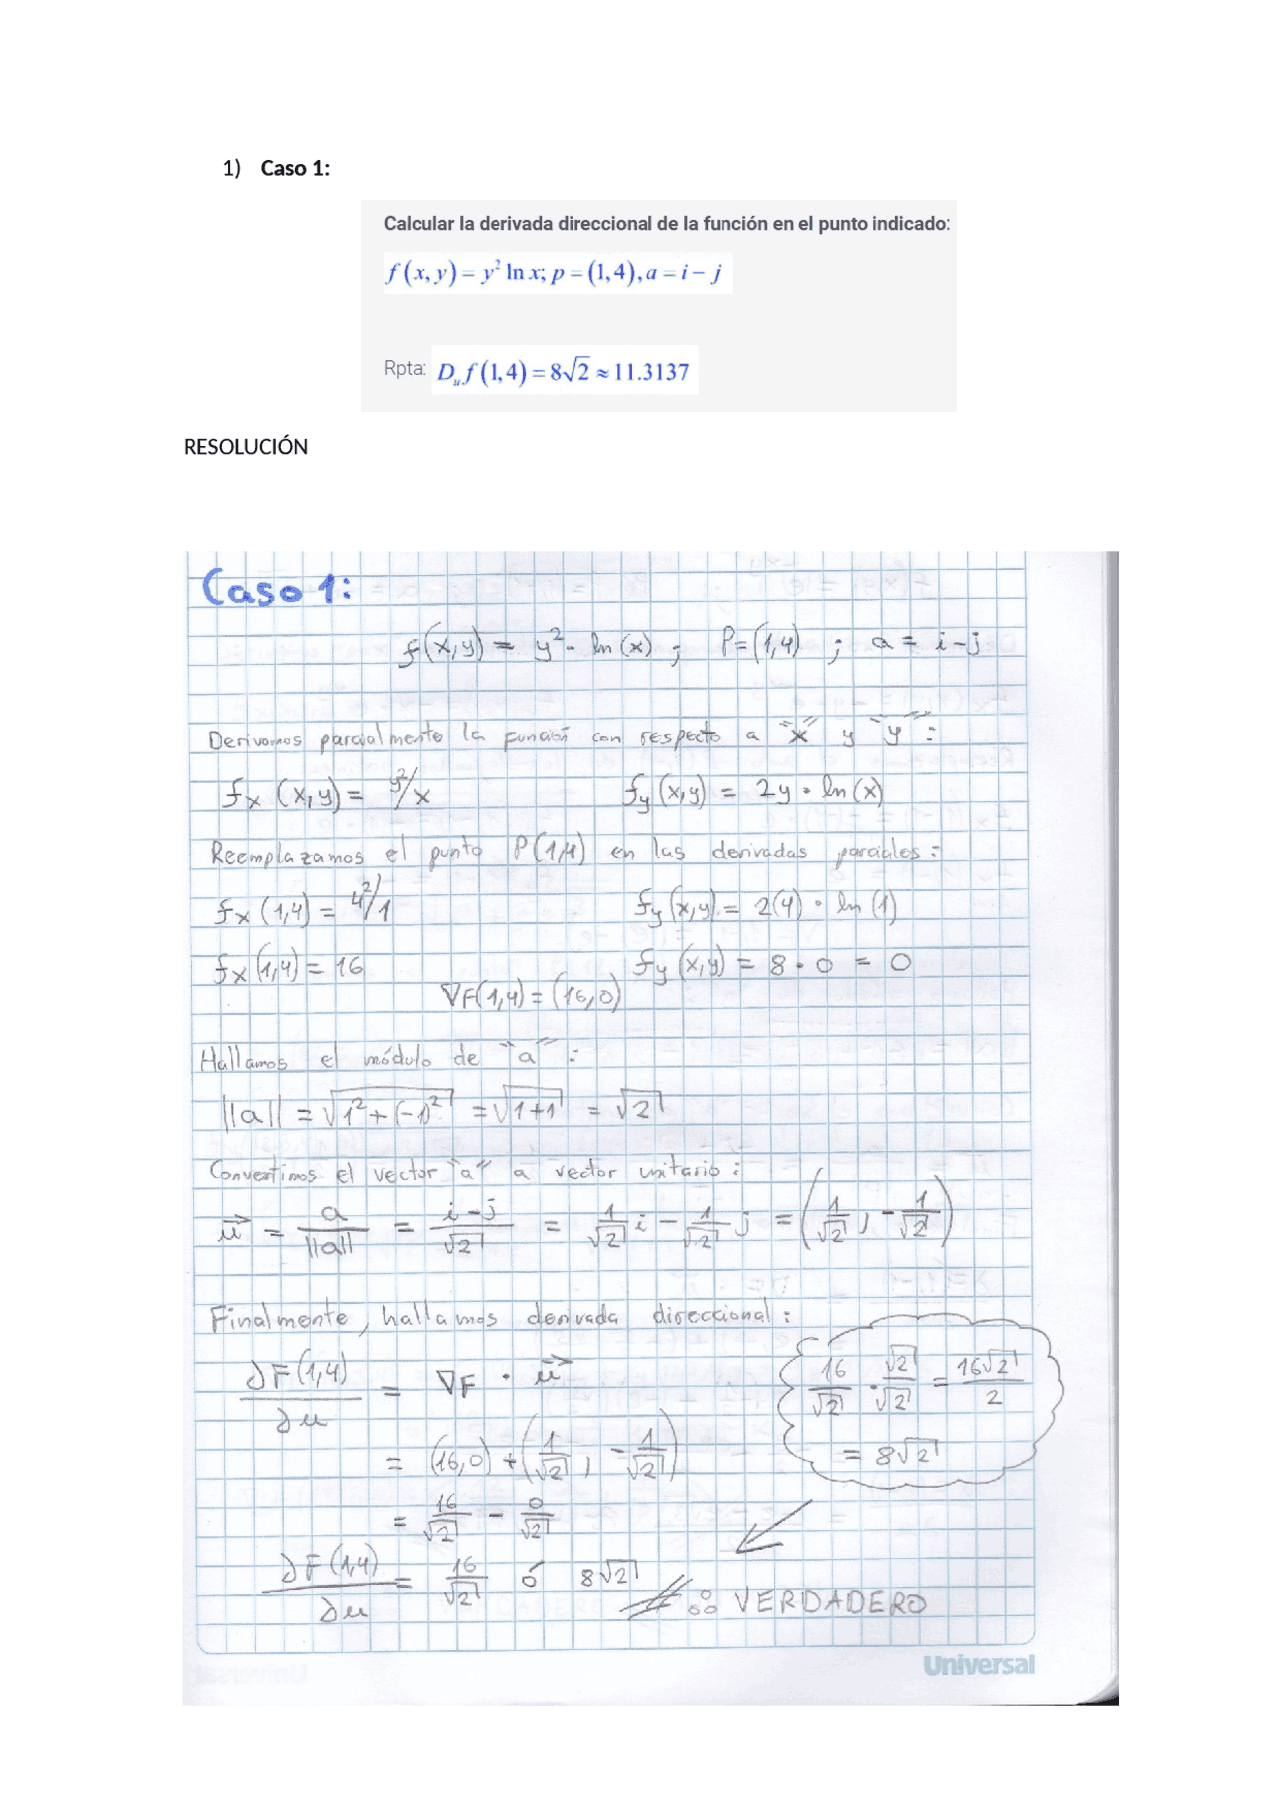 1) Caso 1:
Calcular la derivada direccional de la función en el punto indicado:
f(x, y) = y² ln x; p = (1, 4), a = i − j
Rpta: D_u f(1, 4) = 8√2 ≈ 11.3137
RESOLUCIÓN
Caso 1:
f(x,y) = y² · ln(x) ; P=(1,4) ; a = i-j
Derivamos parcialmente la función con respecto a "x" y "y":
fx (x,y) = y²/x fy (x,y) = 2y · ln(x)
Reemplazamos el punto P(1,4) en las derivadas parciales:
fx (1,4) = 4²/1 fy (x,y) = 2(4) · ln (1)
fx (1,4) = 16 fy (x,y) = 8 · 0 = 0
∇F(1,4) = (16,0)
Hallamos el módulo de "a":
||a|| = √(1² + (-1)²) = √(1+1) = √2
Convertimos el vector "a" a vector unitario:
u⃗ = a/||a|| = (i-j)/√2 = 1/√2 i - 1/√2 j = (1/√2 , -1/√2)
Finalmente, hallamos derivada direccional:
∂F(1,4)/∂u = ∇F · u⃗
= (16,0) + (1/√2 , -1/√2)
= 16/√2 - 0/√2
∂F(1,4)/∂u = 16/√2 ó 8√2 // ∴ VERDADERO
16/√2 · √2/√2 = 16√2/2
= 8√2
Universal